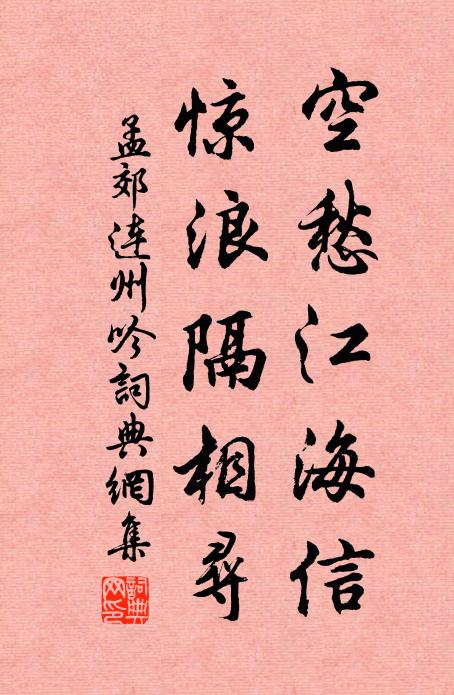 空愁江海信
惊浪隔相尋
孟郊连州吟詞典網集
詞典
网印